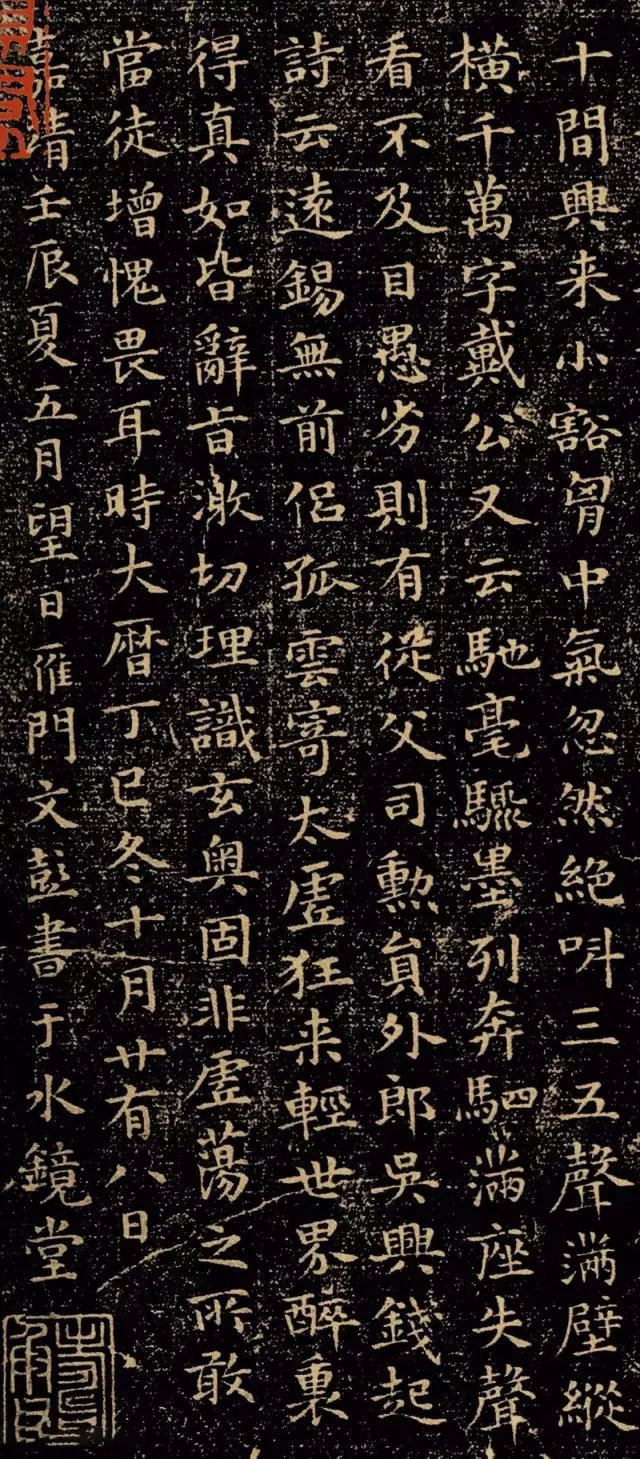 十間興来小豁胷中氣忽然絶叫三五聲滿壁縱
橫千萬字戴公又云馳毫驟墨列奔駟滿座失聲
看不及目愚劣則有從父司勲員外郎吳興錢起
詩云遠錫無前侣孤雲寄太虛狂来輕世界醉裏
得真如皆辭旨激切理識玄奥固非虛蕩之所敢
當徒增愧畏耳時大曆丁巳冬十月廿有八日
嘉靖壬辰夏五月望日雁門文彭書于水鏡堂